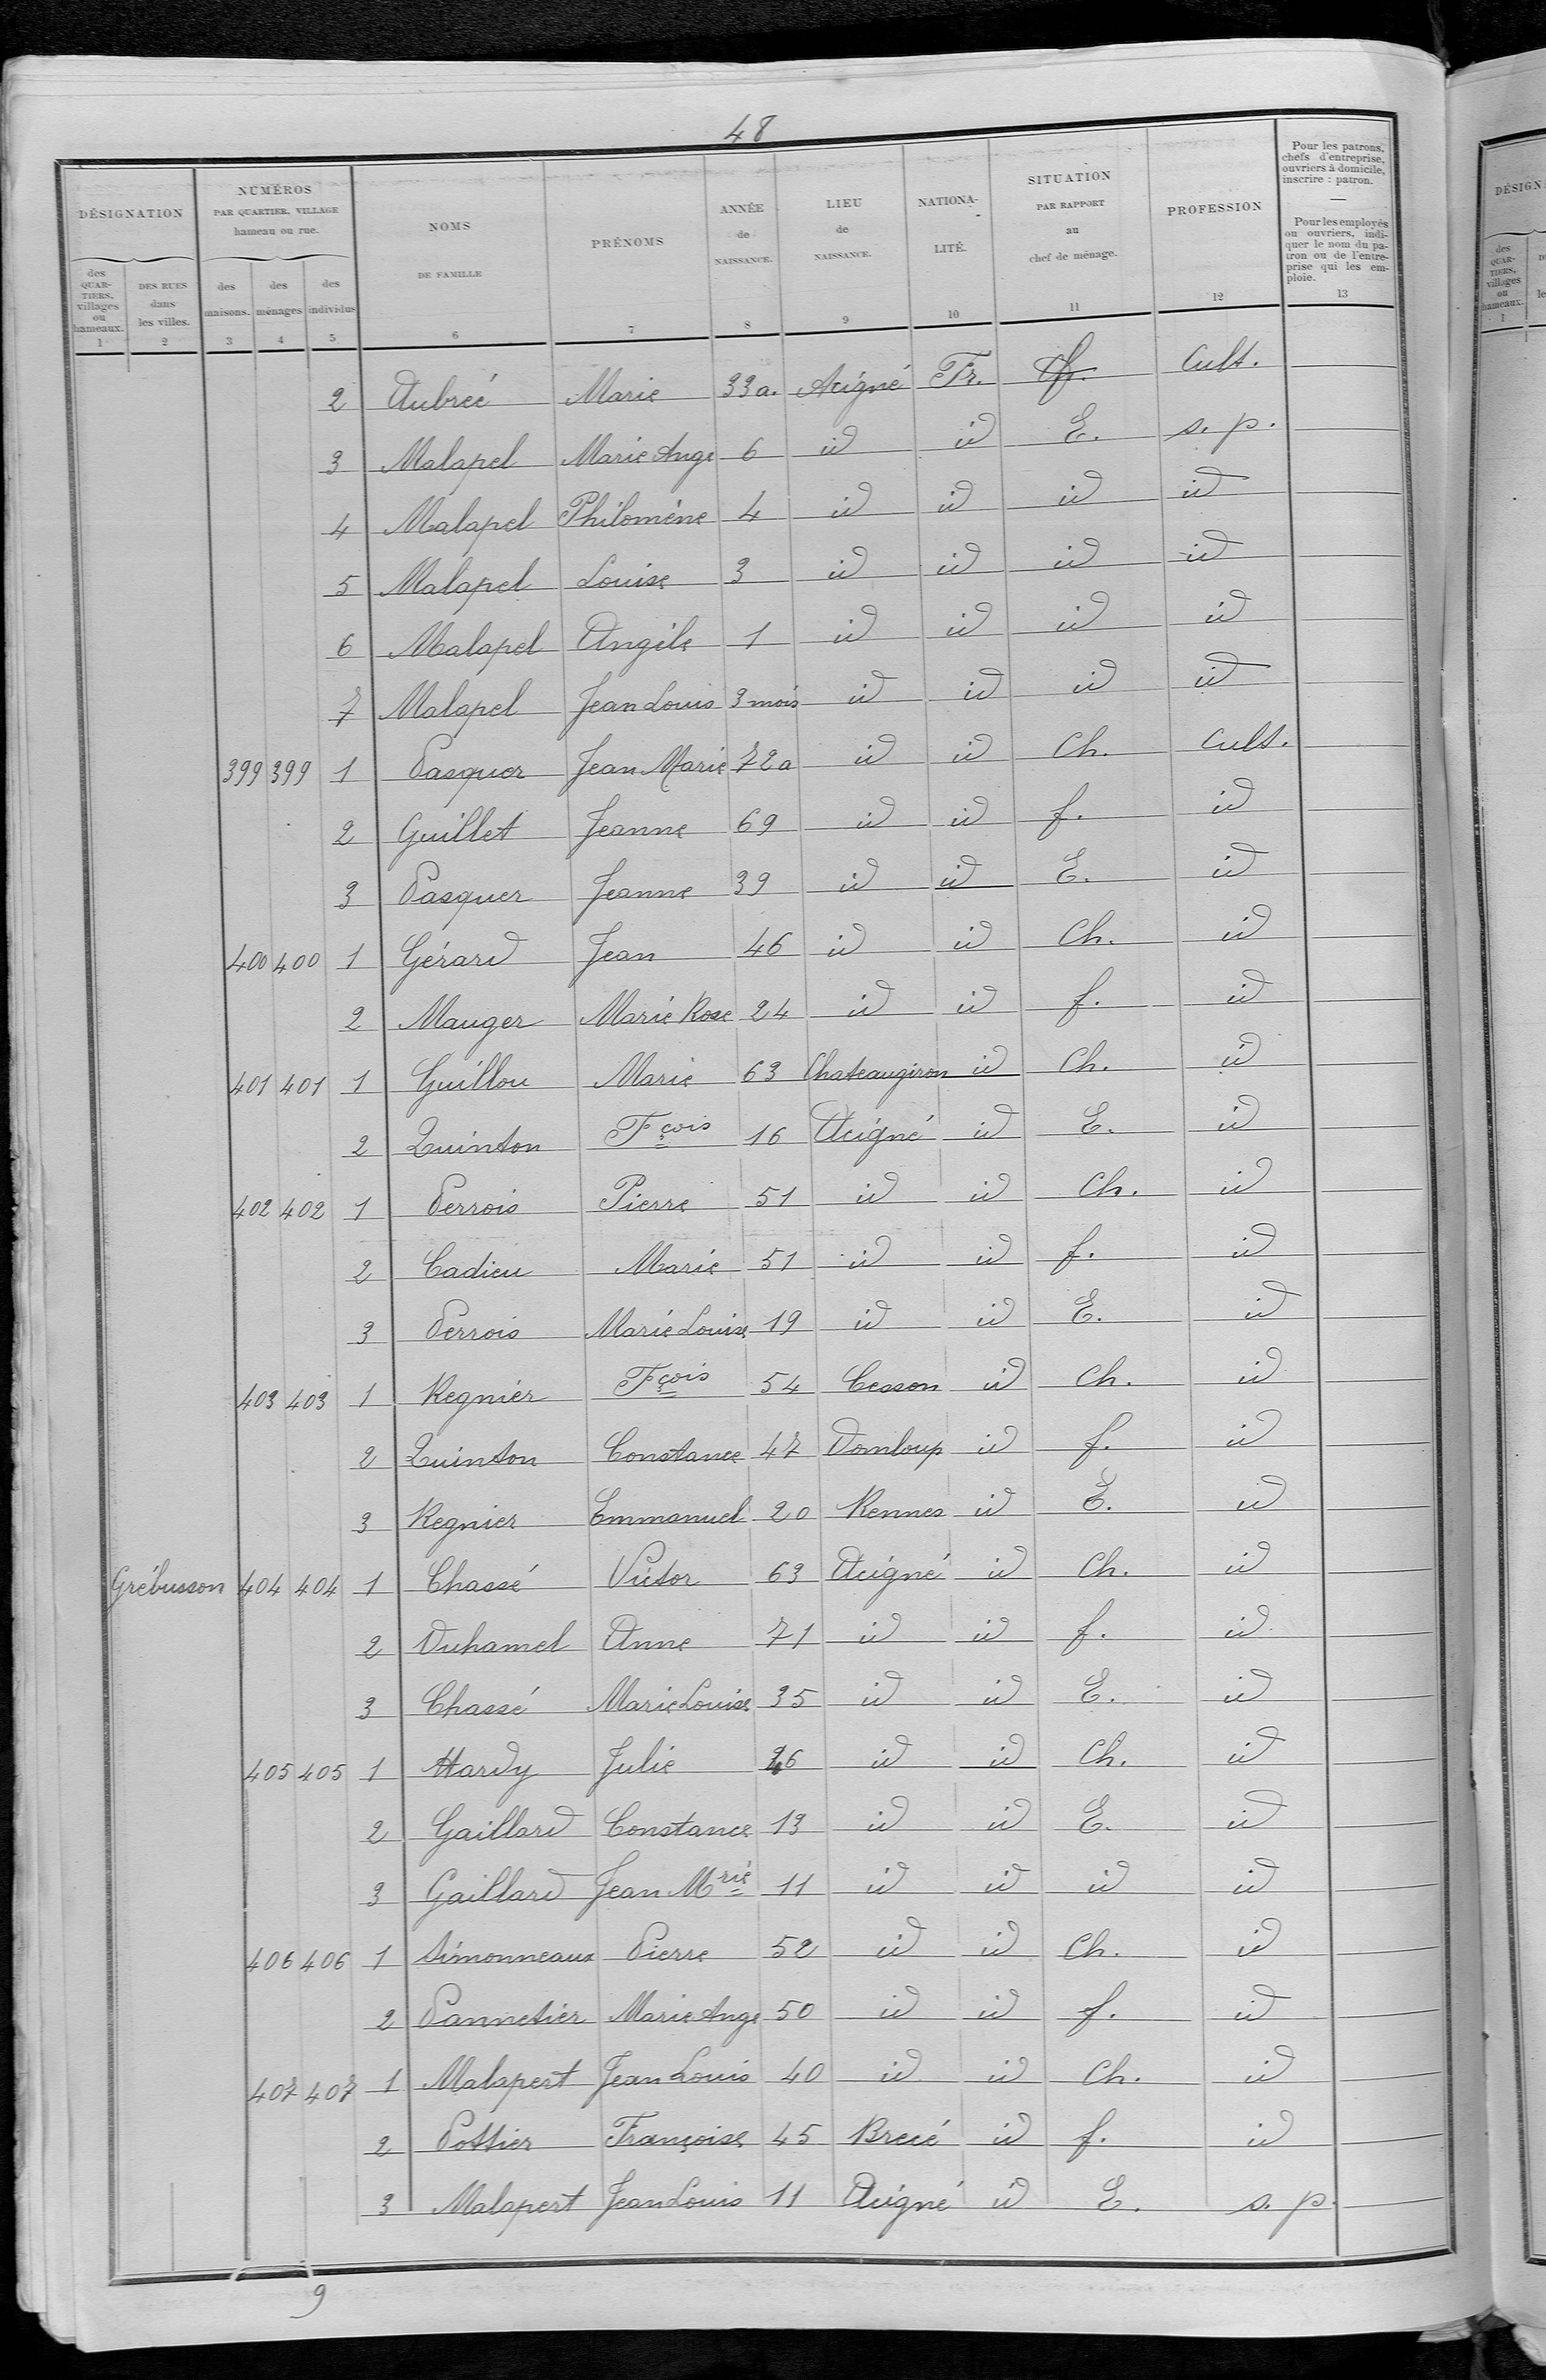 48
DÉSIGNATION
NUMÉROS
PAR QUARTIER, VILLAGE
hameau ou rue.
des QUAR-TIERS, villages ou hameaux.
DES RUES dans les villes.
des maisons.
des ménages
des individus
NOMS DE FAMILLE
PRÉNOMS
ANNÉE de NAISSANCE.
LIEU de NAISSANCE.
NATIONA-LITÉ.
SITUATION PAR RAPPORT au chef de ménage.
PROFESSION
Pour les patrons, chefs d'entreprise, ouvriers à domicile, inscrire : patron.
Pour les employés ou ouvriers, indi-quer le nom du pa-tron ou de l'entre-prise qui les em-ploie.
1 2 3 4 5 6 7 8 9 10 11 12 13
2 Aubreé Marie 33 a. Acigné Fr. f. Cult.
3 Malapel Marie Ange 6 id id E. s. p.
4 Malapel Philomène 4 id id id id
5 Malapel Louise 3 id id id id
6 Malapel Angèle 1 id id id id
7 Malapel Jean Louis 3 mois id id id id
399 399 1 Pasquer Jean Marie 72 a id id Ch. Cult.
2 Guillet Jeanne 69 id id f. id
3 Pasquer Jeanne 39 id id E. id
400 400 1 Gérard Jean 46 id id Ch. id
2 Mauger Marie Rose 24 id id f. id
401 401 1 Guillou Marie 63 Chateaugiron id Ch. id
2 Quinton Fçois 16 Acigné id E. id
402 402 1 Perrois Pierre 51 id id Ch. id
2 Cadieu Marie 51 id id f. id
3 Perrois Marie Louise 19 id id E. id
403 403 1 Regnier Fçois 54 Cesson id Ch. id
2 Quinton Constance 47 Domloup id f. id
3 Regnier Emmanuel 20 Rennes id E. id
Grébusson 404 404 1 Chassé Victor 63 Acigné id Ch. id
2 Duhamel Anne 71 id id f. id
3 Chassé Marie Louise 35 id id E. id
405 405 1 Hardy Julie 46 id id Ch. id
2 Gaillard Constance 13 id id E. id
3 Gaillard Jean Mrie 11 id id id id
406 406 1 Simonneaux Pierre 52 id id Ch. id
2 Pannetier Marie Ange 50 id id f. id
407 407 1 Malapert Jean Louis 40 id id Ch. id
2 Pottier Françoise 45 Brecé id f. id
3 Malapert Jean Louis 11 Acigné id E. s. p.
9